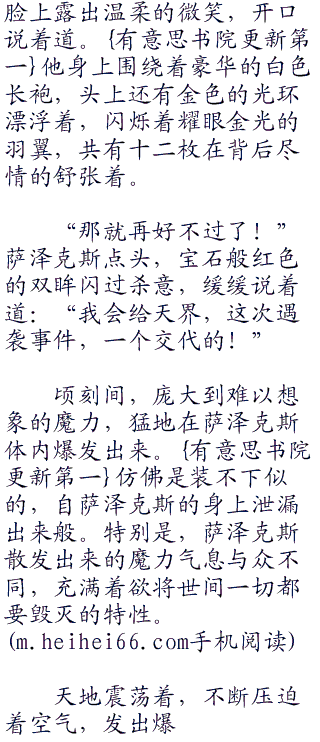 脸上露出温柔的微笑，开口
说着道。{有意思书院更新第
一}他身上围绕着豪华的白色
长袍，头上还有金色的光环
漂浮着，闪烁着耀眼金光的
羽翼，共有十二枚在背后尽
情的舒张着。
“那就再好不过了！”
萨泽克斯点头，宝石般红色
的双眸闪过杀意，缓缓说着
道：“我会给天界，这次遇
袭事件，一个交代的！”
顷刻间，庞大到难以想
象的魔力，猛地在萨泽克斯
体内爆发出来。{有意思书院
更新第一}仿佛是装不下似
的，自萨泽克斯的身上泄漏
出来般。特别是，萨泽克斯
散发出来的魔力气息与众不
同，充满着欲将世间一切都
要毁灭的特性。
(m.heihei66.com手机阅读)
天地震荡着，不断压迫
着空气，发出爆